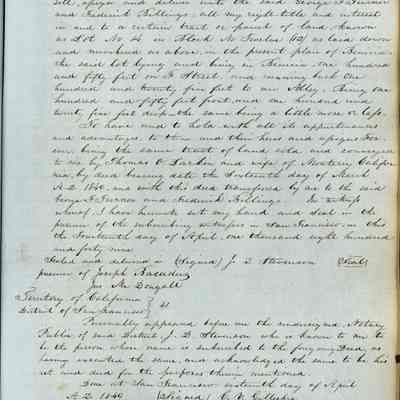 sell, assign and deliver unto the said George F. Turner
and Frederick Billings; all my right title and interest
in and to a certain tract or parcel of land, known
as Lot No 4 in Block No Twelve (12) as laid down
and numbered as above, in the present plan of Benicia
the said lot lying and being in Benicia, one hundred
and fifty feet on I Street, and running back one
hundred and twenty five feet to an Alley. Being one
hundred and fifty feet front, and one hundred and
twenty five feet deep, the same being a little more or less.
To have and to hold with all its appurtenances
and advantages to them and their heirs and assigns for-
ever, being the same tract of land sold and conveyed
to me by Thomas O Larkin and wife of Monterey Califor
nia, by deed bearing date the Sixteenth day of March
A.D. 1849, and with this deed transferred by me to the said
George F. Turner and Frederick Billings. In witness
whereof, I have hereunto set my hand and seal in the
presence of the subscribing witnesses in San Francisco, on this
the Fourteenth day of April, one thousand eight hundred
and forty nine
Sealed and delivered in (Signed) J. D. Stevenson (Seal)
presence of Joseph
Jno McDougall
Territory of California
District of San Francisco
Personally appeared before me the undersigned, Notary
Public of said District, J. D. Stevenson who is known to me to
be the person whose name is subscribed to the foregoing Deed, as
having executed the same, and acknowledged the same to be his
act and deed for the purposes therein mentioned.
Done at San Francisco sixteenth day of April
A.D. 1849 (Signed) C. V. Gillespie